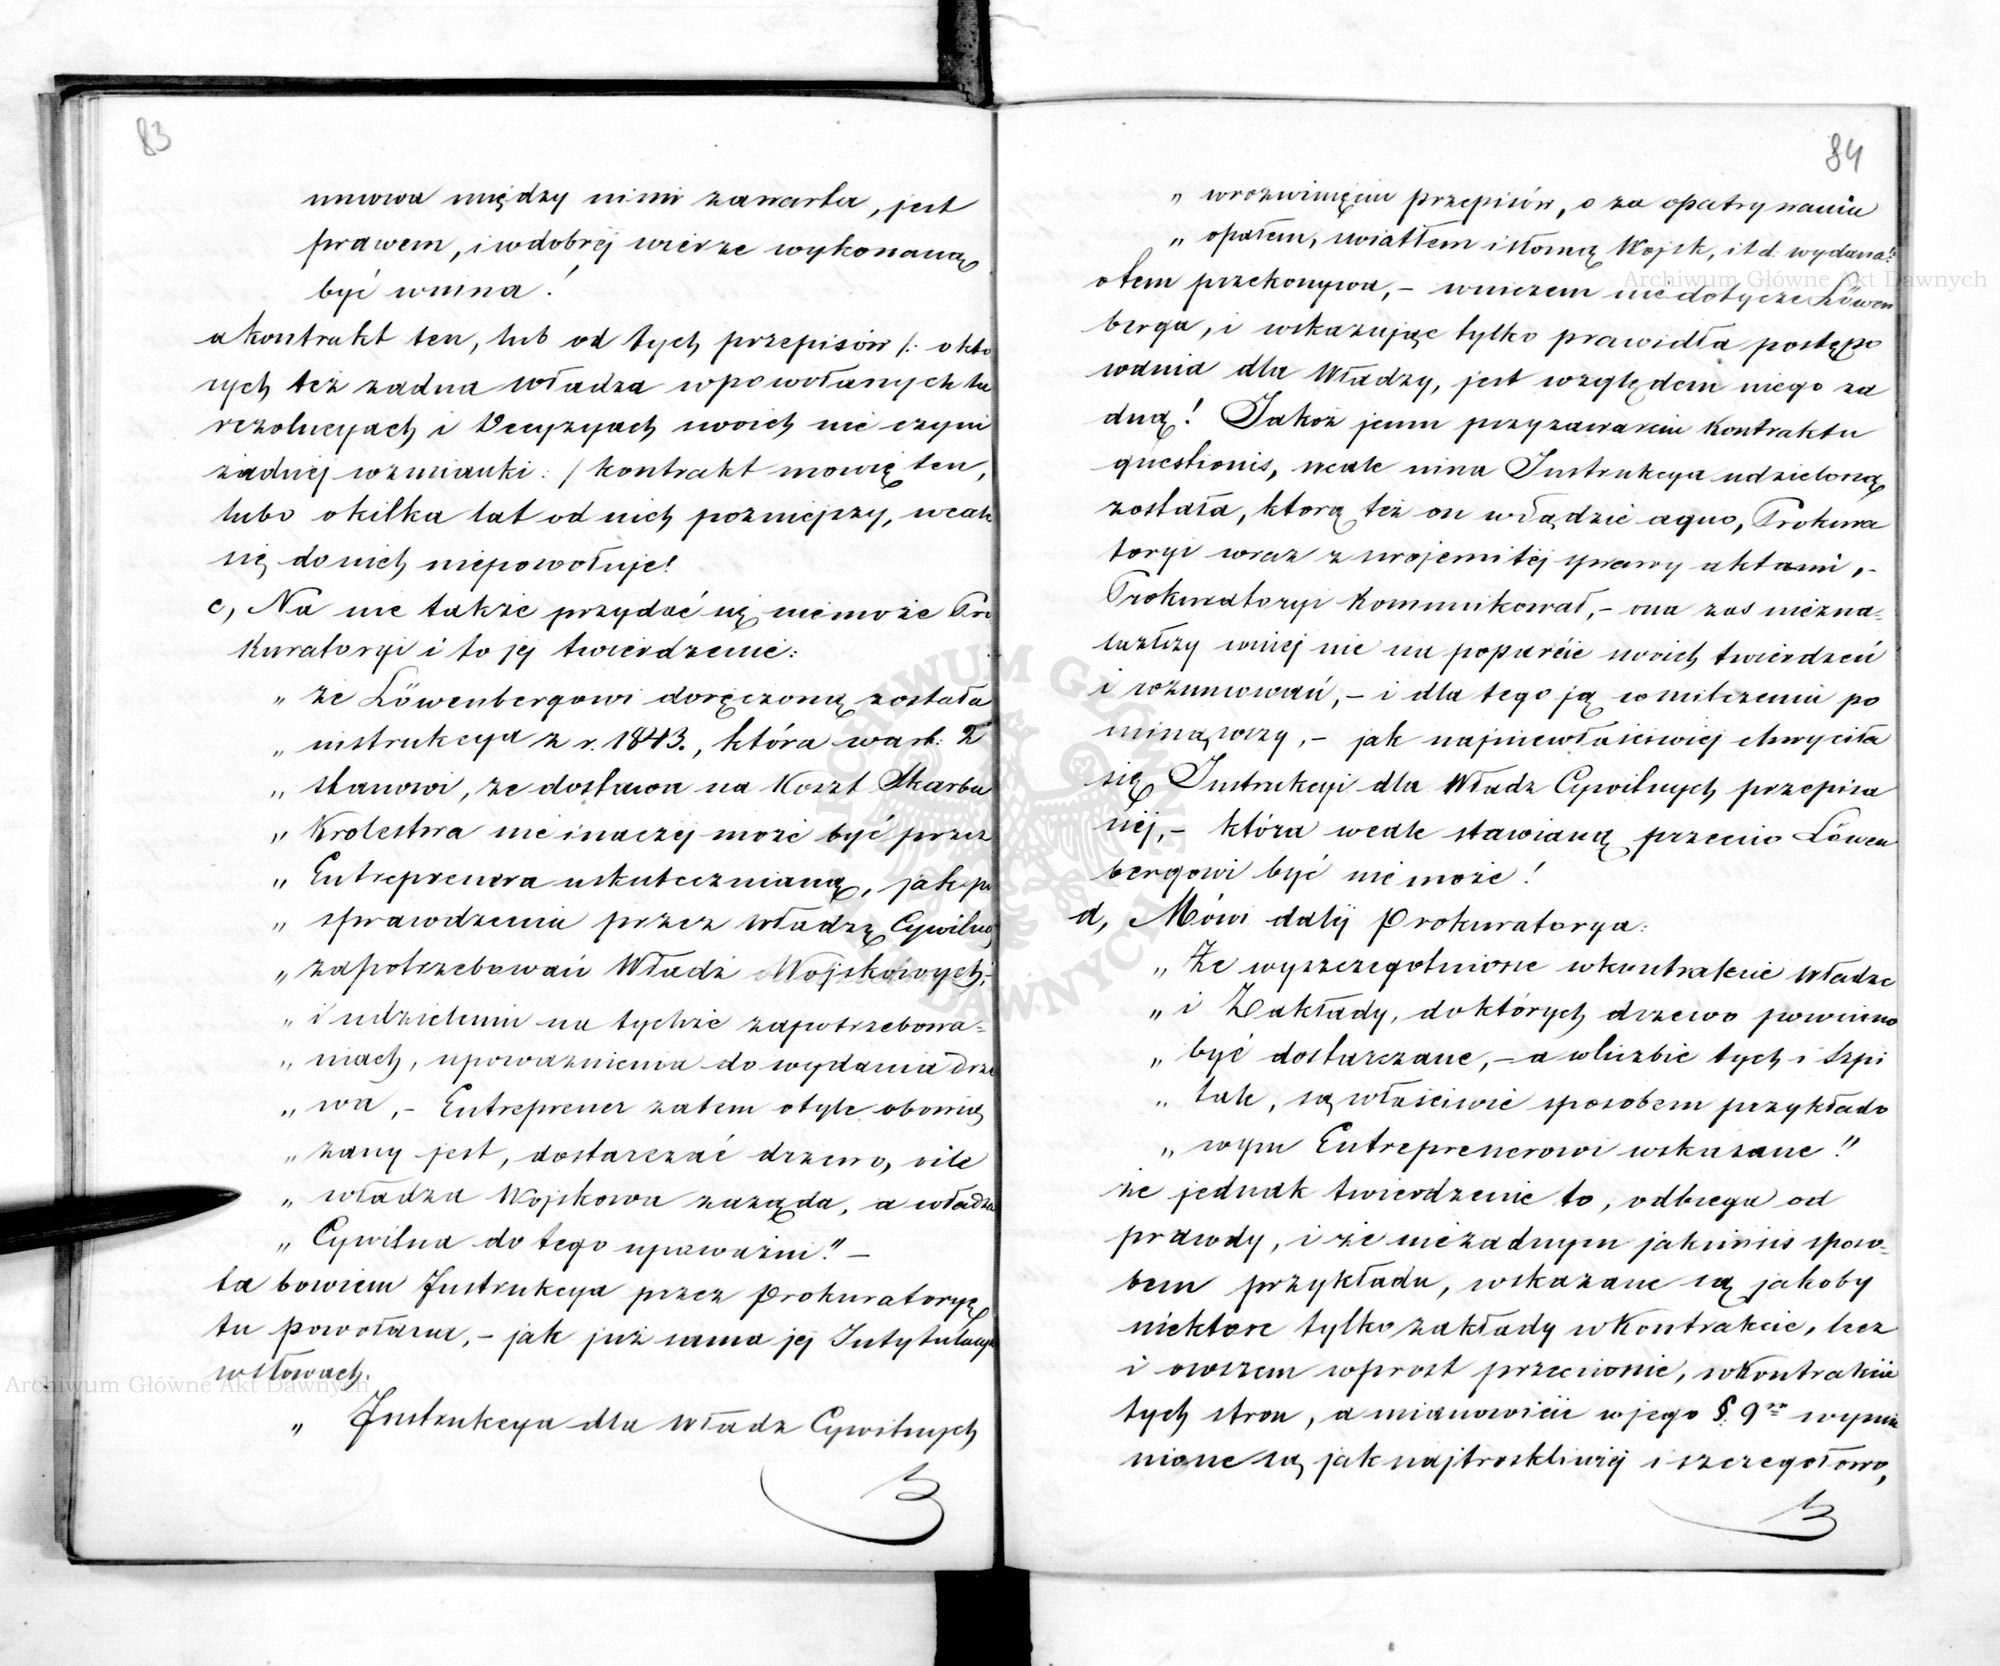 83
umowa między nimi zawarta, jest
prawem, i w dobrej wierze wykonaną
być winna!
a kontrakt ten, lub od tych przepisów /: o któ
rych też żadna Władza w powołanych tu
rezolucyach i Decyzyach swoich nie czyni
żadnej wzmianki :/ kontrakt mowię ten,
lubo o kilka lat od nich pozniejszy, wcale
się do nich niepowołuje!
c, Na nic także przydać się niemoże Pro
kuratoryi i to jej twierdzenie:
„ że Löwenbergowi doręczoną została
„ instrukcya z r. 1843., która w art: 2
„ stanowi, że dostawa na Koszt Skarbu
„ Krolestwa nie inaczej może być przez
„ Entreprenera uskuteczniana, jak po
„ sprawdzeniu przez Władzę Cywilną
„ zapotrzebowań Władz Wojskowych,
„ i udzieleniu na tychże zapotrzebowa-
„ niach, upoważnienia do wydania drze
„ wa, – Entreprener zatem otyle obowią
„ zany jest, dostarczać drzewo, oile
„ władza Wojskowa zażąda, a władza
„ Cywilna do tego upoważni." –
ta bowiem Instrukcya przez Prokuratoryę
tu powołana, – jak już sama jej Intytulacya
w słowach.
„ Instrukcya dla Władz Cywilnych
84
„ w rozwinięciu przepisów, o za opatrywaniu
„ opałem, swiatłem i słomą Wojsk, i t d: wydana:
o tem przekonywa, – w niczem nie dotycze Löwen
berga, i wskazując tylko prawidła postępo
wania dla Władzy, jest względem niego ża
dną! Jakoż jemu przy zawarciu Kontraktu
questionis, wcale inna Instrukcya udzieloną
została, którą też on władzie a quo, Prokura
toryi wraz z swojemi tej sprawy aktami, –
Prokuratoryi Kommunikował, – ona zas niezna-
lazłszy w niej nic na poparcie swoich twierdzeń
i rozumowań, – i dla tego ją w milczeniu po
minąwszy, – jak najniewłaściwiej chwyciła
się Instrukcyi dla Władz Cywilnych przepisa
nej, – która wcale stawianą przeciw Löwen
bergowi być nie może!
d, Mówi dalej Prokuratorya:
„ Że wyszczegolnione w kontrakcie Władze
„ i Zakłady, do których drzewo powinno
„ być dostarczane, – a w liczbie tych i Szpi
„ tale, są właściwie sposobem przykłado
„ wym Entreprenerowi wskazane!"
że jednak twierdzenie to, odbiega od
prawdy, i że nie żadnym jakimsis sposo-
bem przykładu, wskazane są jakoby
niektóre tylko zakłady w Kontrakcie, lecz
i owszem wprost przeciwnie, w Kontrakcie
tych stron, a mianowicie w jego §. 9m wymie
nione są jak najtroskliwiej i szczegołowo,